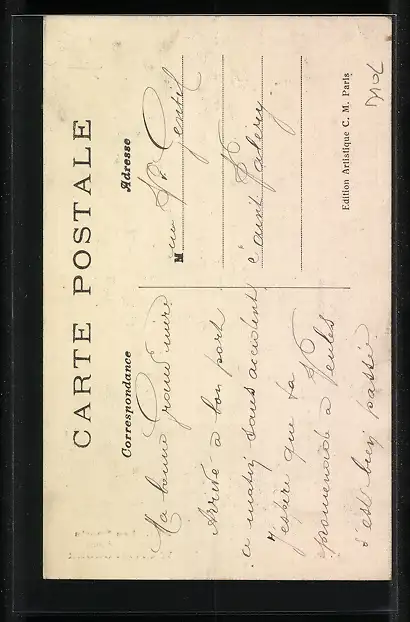 CARTE POSTALE
Correspondance
Ma bonne Grand'mère
Arrivée à bon port
ce matin sans accident
J'espère que ta
promenade à Veules
s'est bien passée
Adresse
Mme Gentil
Saint Valery
Edition Artistique C. M. Paris